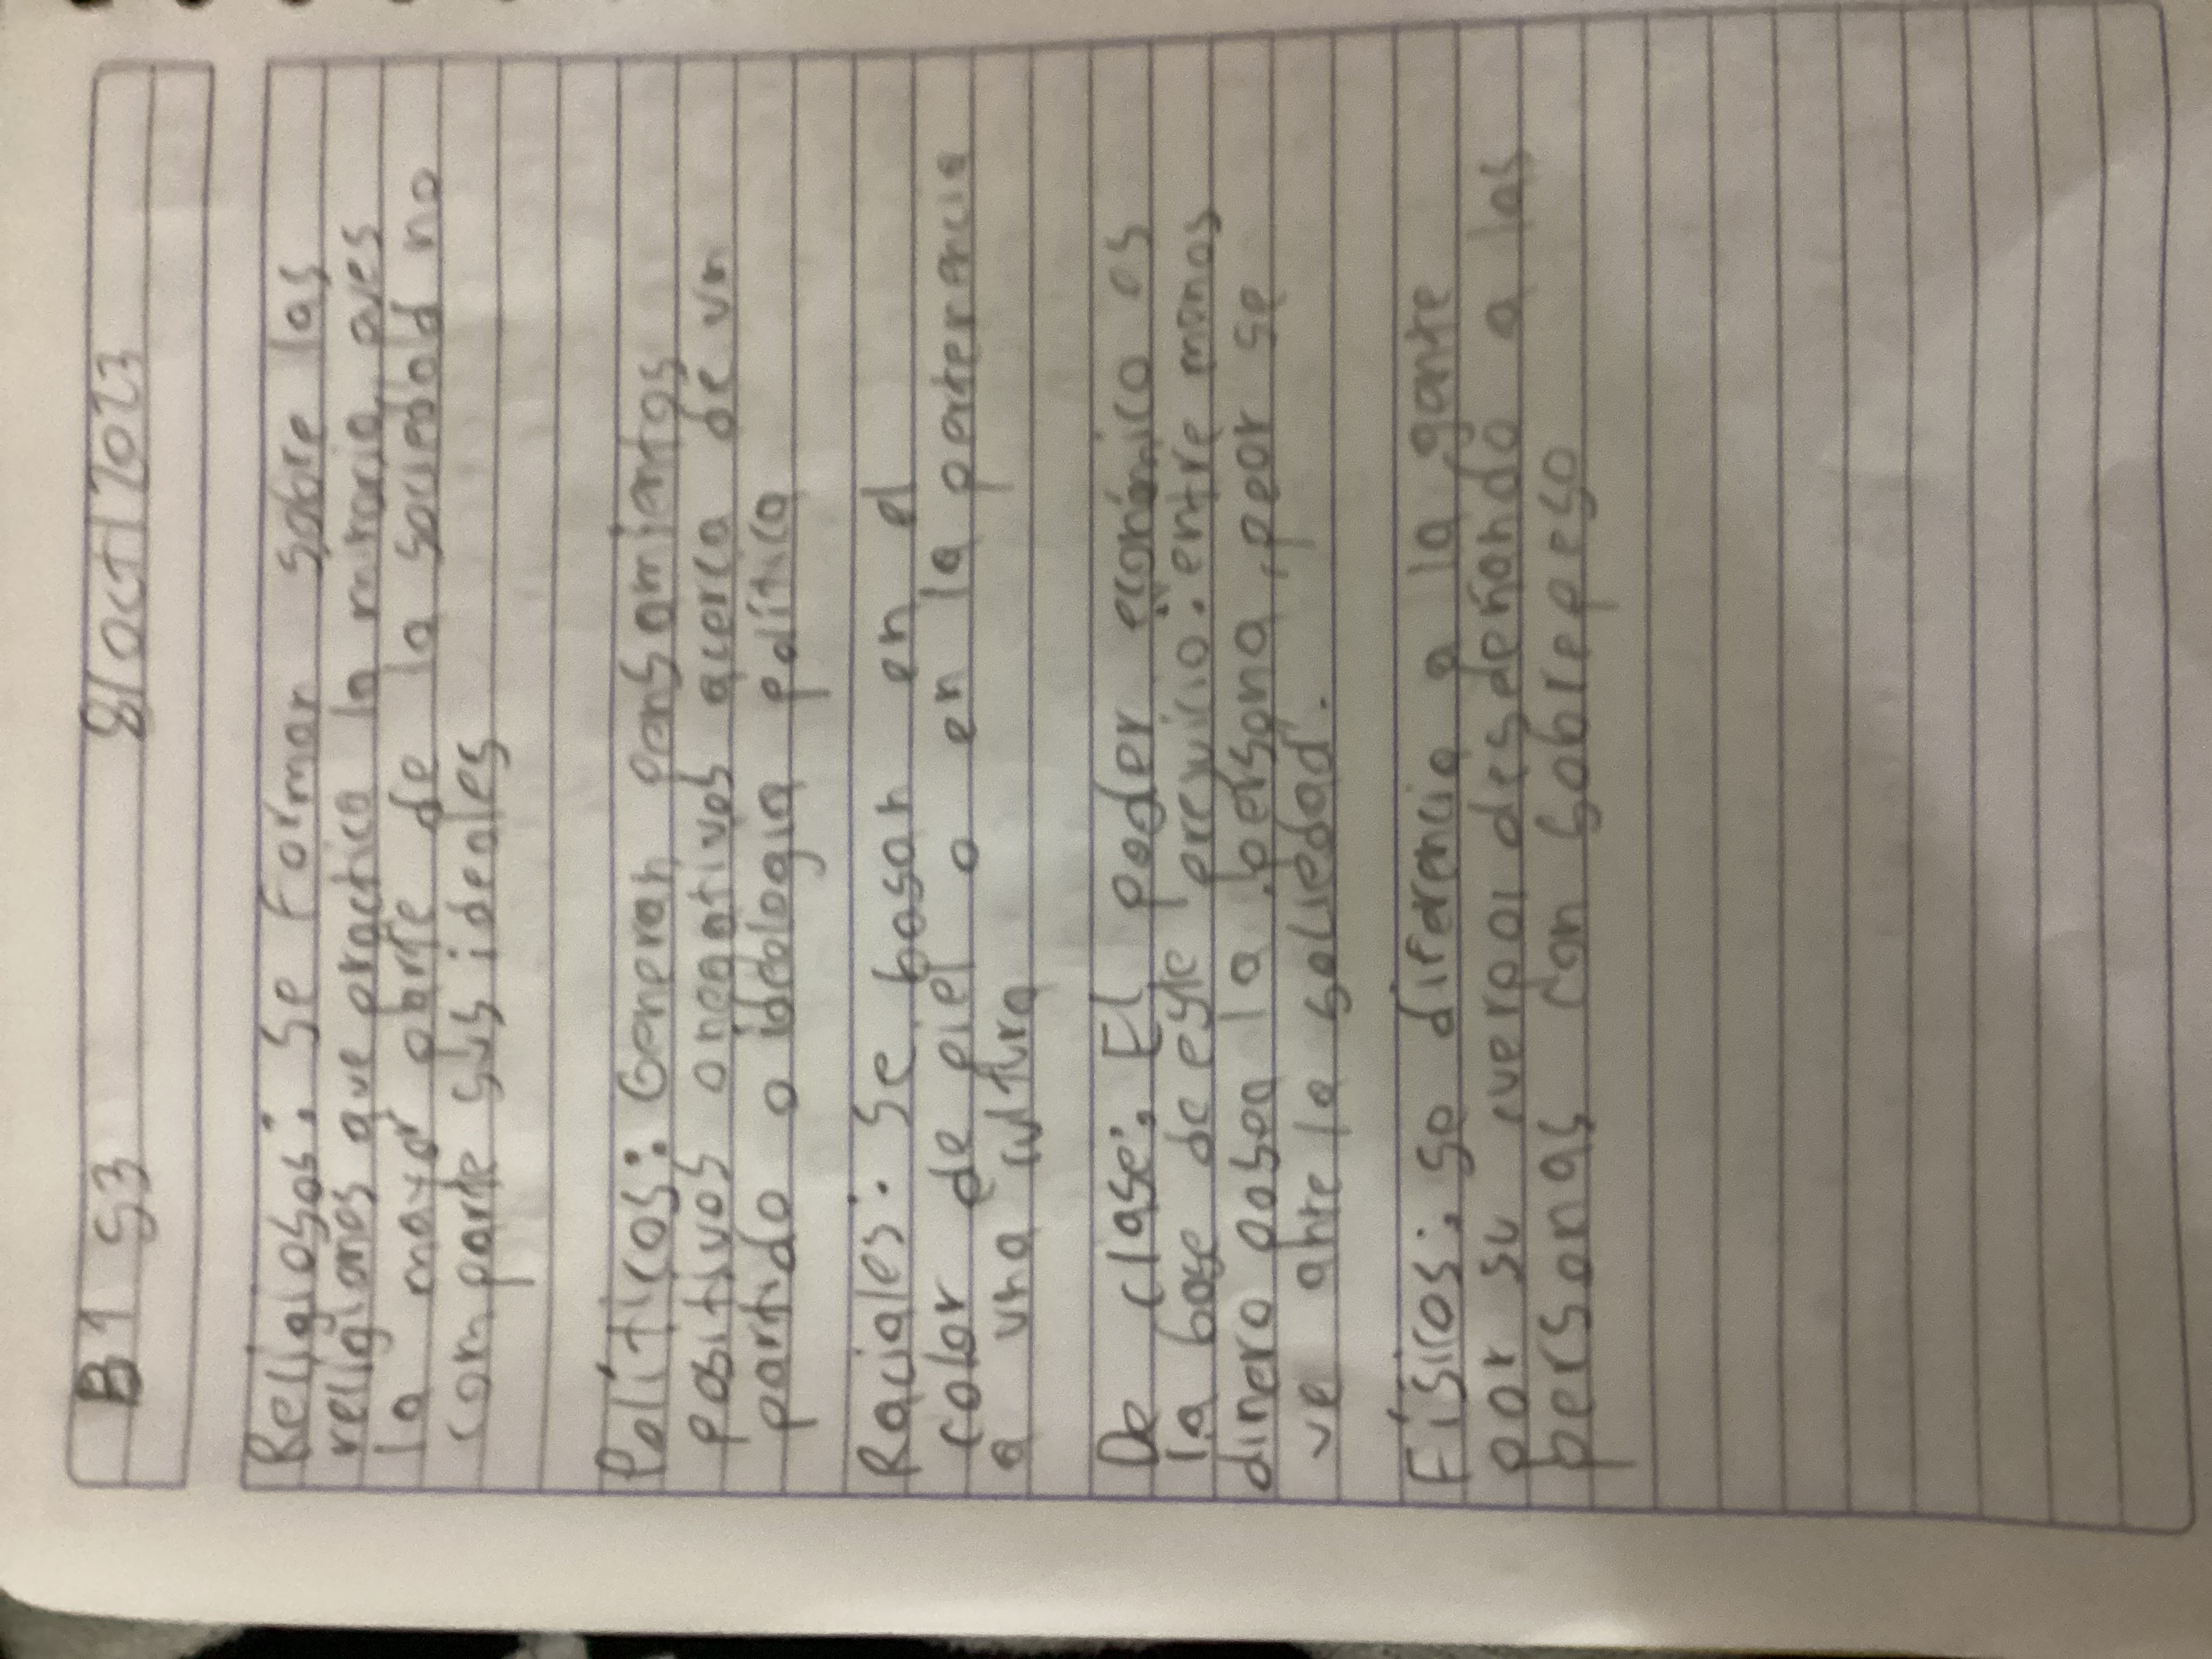 B1 S3 8/oct/2023
Religiosos: Se Forman sobre las
religiones que practica la minoria, pues
la mayor parte de la sociedad no
comparte sus ideales
Políticos: Generan pensamientos
positivos o negativos acerca de un
partido o ideologia político
Raciales: Se basan en el
color de piel o en la pertenencia
a una cultura
De clase: El poder económico es
la base de este prejuicio. entre menos
dinero posea la persona, peor se
ve ante la soliedad.
Físicos: se diferencia a la gente
por su cuerpo, desdeñando a las
personas con sobrepeso